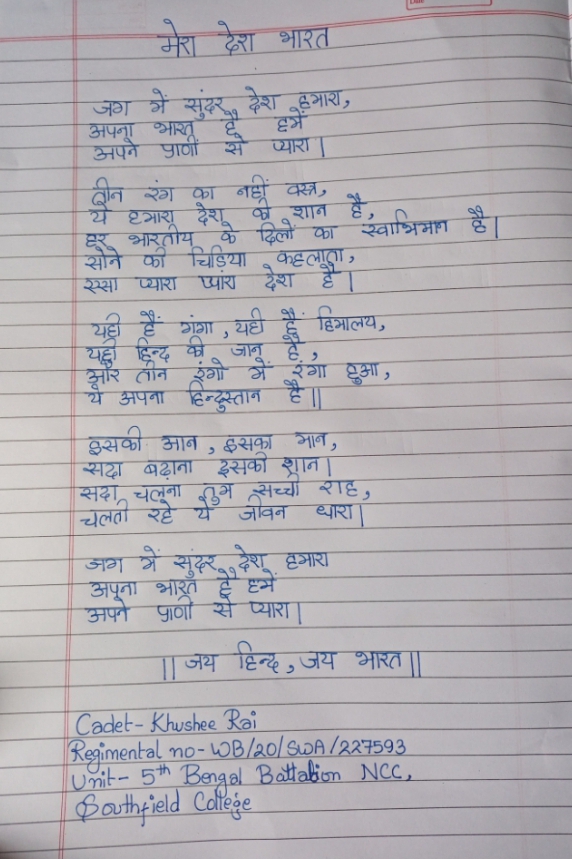 मेरा देश भारत
जग में सुंदर देश हमारा,
अपना भारत है हमें
अपने प्राणों से प्यारा।
तीन रंग का नहीं वस्त्र,
ये हमारा देश की शान है,
हर भारतीय के दिलों का स्वाभिमान है।
सोने की चिड़िया कहलाता,
रस्सा प्यारा प्यारा देश है।
यही हैं गंगा, यही हैं हिमालय,
यही हिन्द की जान है,
और तीन रंगो में रंगा हुआ,
ये अपना हिन्दुस्तान है॥
इसकी आन, इसका मान,
सदा बढ़ाना इसकी शान।
सदा चलना तुम सच्ची राह,
चलती रहे ये जीवन धारा।
जग में सुंदर देश हमारा
अपना भारत है हमें
अपने प्राणों से प्यारा।
॥ जय हिन्द, जय भारत ॥
Cadet- Khushee Rai
Regimental no- WB/20/SWA/227593
Unit- 5th Bengal Battalion NCC,
Southfield College